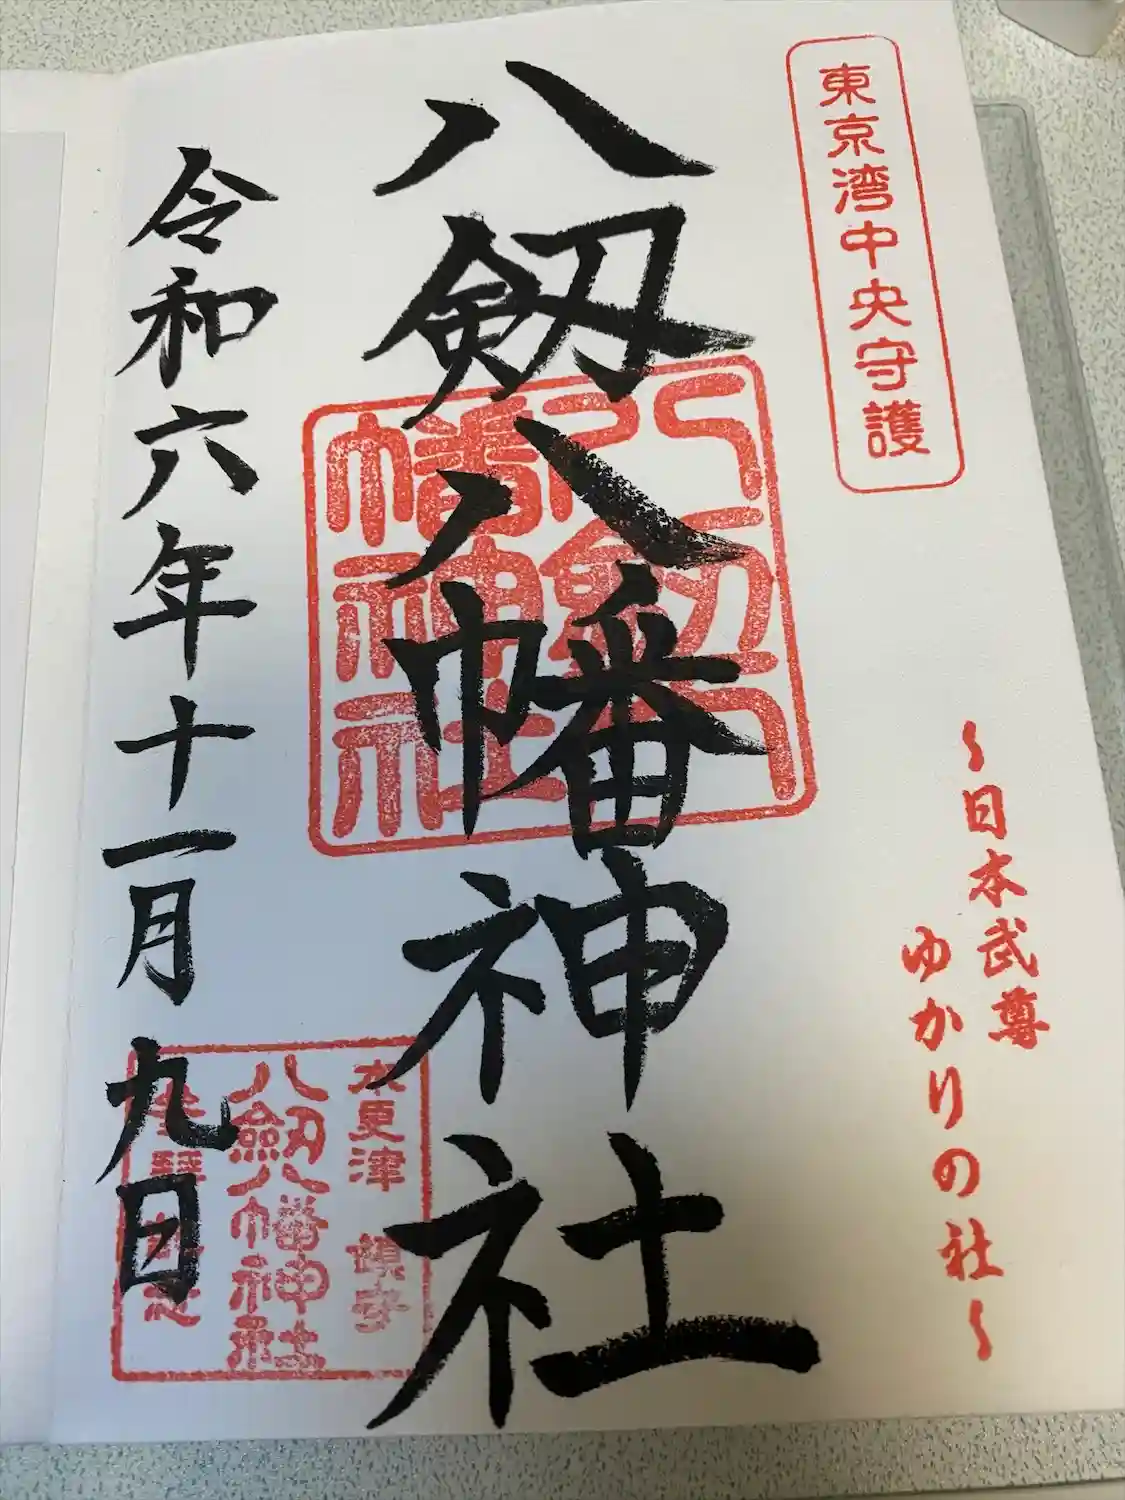 東京湾中央守護
〜日本武尊
ゆかりの社〜
八剱八幡神社
八剱八
幡神社
木更津 鎮守
八剱八幡神社
参拝記念
令和六年十一月九日